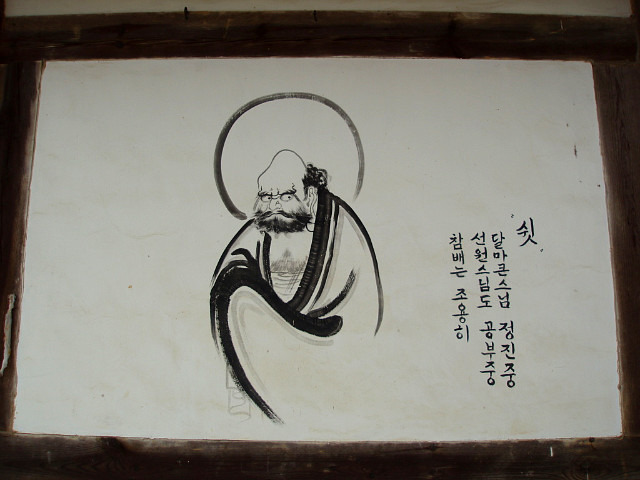 쉿
달마큰스님 정진중
선원스님도 공부중
참배는 조용히